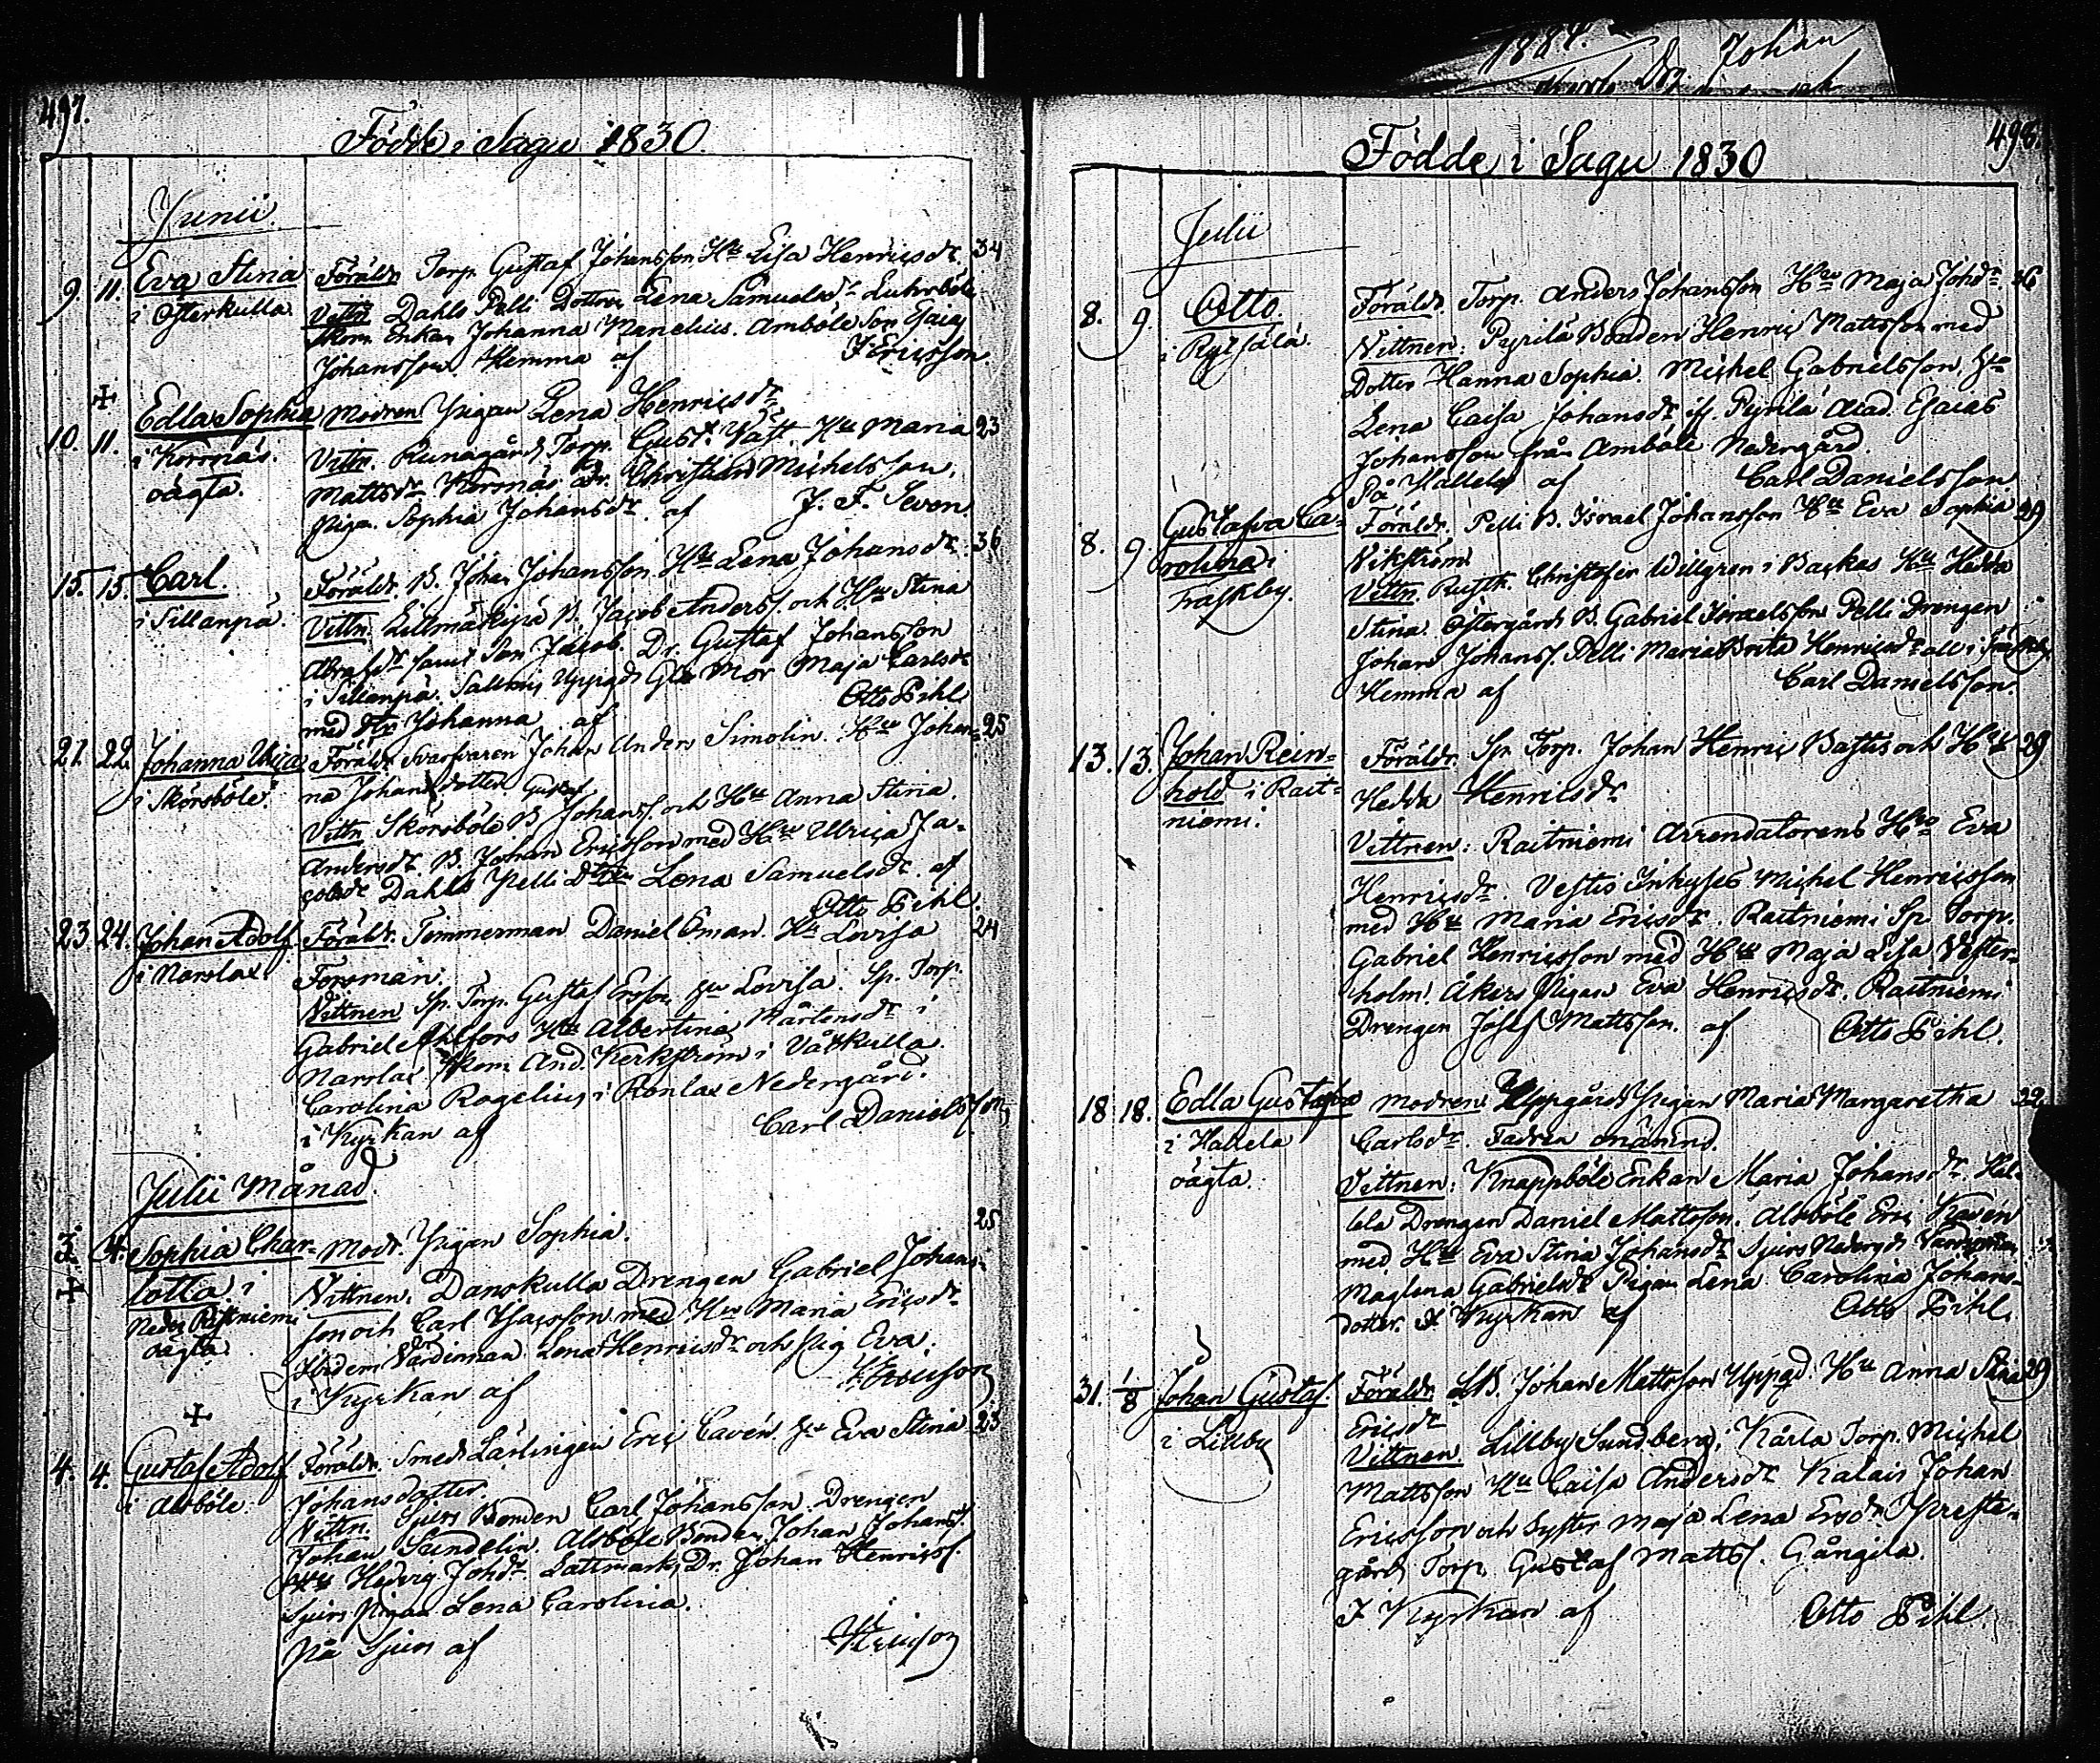 1884.
Johan
497.
Födde i Sagu 1830.
Junii
9. 11. Eva Stina Föräldr. Torp. Gustaf Johansson Hu Lisa Henricsdr 34
i Österkulla. Vittn. Dahls Pelli Dottren Lena Samuelsdr
Enkan Johanna Manelius. Amböle Son Esaias
Johansson. Hemma af J Ericsson.
Edla Sophia Modren Pigan Lena Henricsdr
10. 11. i Korrnäs. Vittn. Runagård Torp. Gust. Hu Maria 23
oägta. Mattsdr Korrnäs Dr. Christian Michelsson,
Pigan Sophia Johansdr. af J. F. Sevon.
15. 15. Carl. Föräldr. B. Johan Johansson Hu Lena Johansdr. 36
i Sillanpä. Vittn. Lillmäkipä B. Jacob Anderss. och Hu Stina
Abrahdr samt Son Jacob. Dr. Gustaf Johansson
i Sillanpä. Uppgds Gla Mor Maja Carlsdr
med Johanna af Otto Pihl
21. 22. Johanna Ulrica Föräldr. Svarfvaren Johan Anders Simolin. Hu Johan= 25
i Skörsböle. na Johansdotter Gustaf
Vittn Skörsböle B Johanss. och Hu Anna Stina.
Andersdr. B. Johan Ericsson med Hu Ulrica Ja-
cobdr Dahls Pelli Lena Samuelsdr. af
Otto Pihl.
23 24. Johan Adolf Föräldr. Timmerman Daniel Öman. Hu Lovisa 24
i Norrlax Forsman.
Vittnen Sp. Torp. Gustaf Lovisa. Sp. Torp.
Gabriel Hu Albertina Mårtensdr i
Norrlax And. i Våtkulla.
Carolina Rogelius i Ronlax Nedergård.
i Kyrkan af Carl Danielsson
Julii Månad.
3. 4. Sophia Char- Modr. Pigan Sophia. 25
lotta i Vittnen. Danskulla Drengen Gabriel Johans-
Neder son och Carl Isacsson med Hu Maria Ericsdr
oägta. Värdinnan Lena Henricsdr och Pig Eva.
i Kyrkan af J. Ericsson
4. 4. Gustaf Adolf Föräldr. Smeds Lärlingen Eric Cavén Hu Eva Stina 23
i Alsböle. Johansdotter.
Vittn. Sjuis Bonden Carl Johansson. Drengen
Johan Sundelin. Alsböle Bonden Johan Johanss.
Hedvig Johdr. Sattmark Dr. Johan Henricss.
Sjuis Pigan Lena Carolina.
På Sjuis af
498.
Födde i Sagu 1830
Julii
8. 9. Otto. Föräldr. Torp. Anders Johansson Hu Maja Johdr 36
i Vittnen: Pyrilä Bonden Henric Mattsson med
Dotter Hanna Sophia. Michel Gabrielsson,
Lena Caisa Johansdr Pyrilä Esaias
Johansson från Amböle Nedergård.
På Hallela af Carl Danielsson
8. 9. Gustafva Ca- Föräldr. Pelli B. Israel Johansson Hu Eva Sophia 29
rolina i Vikström
Fraskby. Vittn. Rusth. Christofer Willgren i Backas Hu Hedda
Stina. Östergård B. Gabriel Israelsson Pelli Drengen
Johan Johanss. Pelli Maria Brita Henricsdr alle i
Hemma af Carl Danielsson.
13. 13. Johan Rein= Föräldr. Sp. Torp. Johan Henric och Hu 29
hold i Rait= Hedda Henricsdr
niemi. Vittnen: Raitniemi Arrendatorens Hu Eva
Henricsdr. Vestis Inhyses Michel Henricsson
med Hu Maria Ericsdr. Raitniemi Sp. Torp.
Gabriel Henricsson med Hu Maja Lisa Vester-
holm. Åkers Pigan Eva Henricsdr. Raitniemi
Drengen Josef Mattsson. af Otto Pihl.
18 18. Edla Gustafva Modren Uppgårds Pigan Maria Margaretha 22
i Hallela Carlsdr. Fadren onämnd.
oägta. Vittnen: Knappböle Enkan Maria Johansdr. Hal-
lela Drengen Daniel Mattsson. Alsböle Eric Kavén
med Hu Eva Stina Johansdr Sjuis Nedergds
Maglena Gabrielsdr Pigan Lena Carolina Johans-
dotter. I Kyrkan af Otto Pihl.
31. 1/8 Johan Gustaf. Föräldr. B. Johan Mattsson Uppgd. Hu Anna Stina 29
i Lillby Ericsdr
Vittnen. Lillby Sundberg, Kårla Torp. Michel
Mattsson Hu Caisa Andersdr Kalais Johan
Ericsson och Syster Maja Lena Ersdr Preste-
gårds Torp. Gustaf Mattss. Gångila.
I Kyrkan af Otto Pihl.